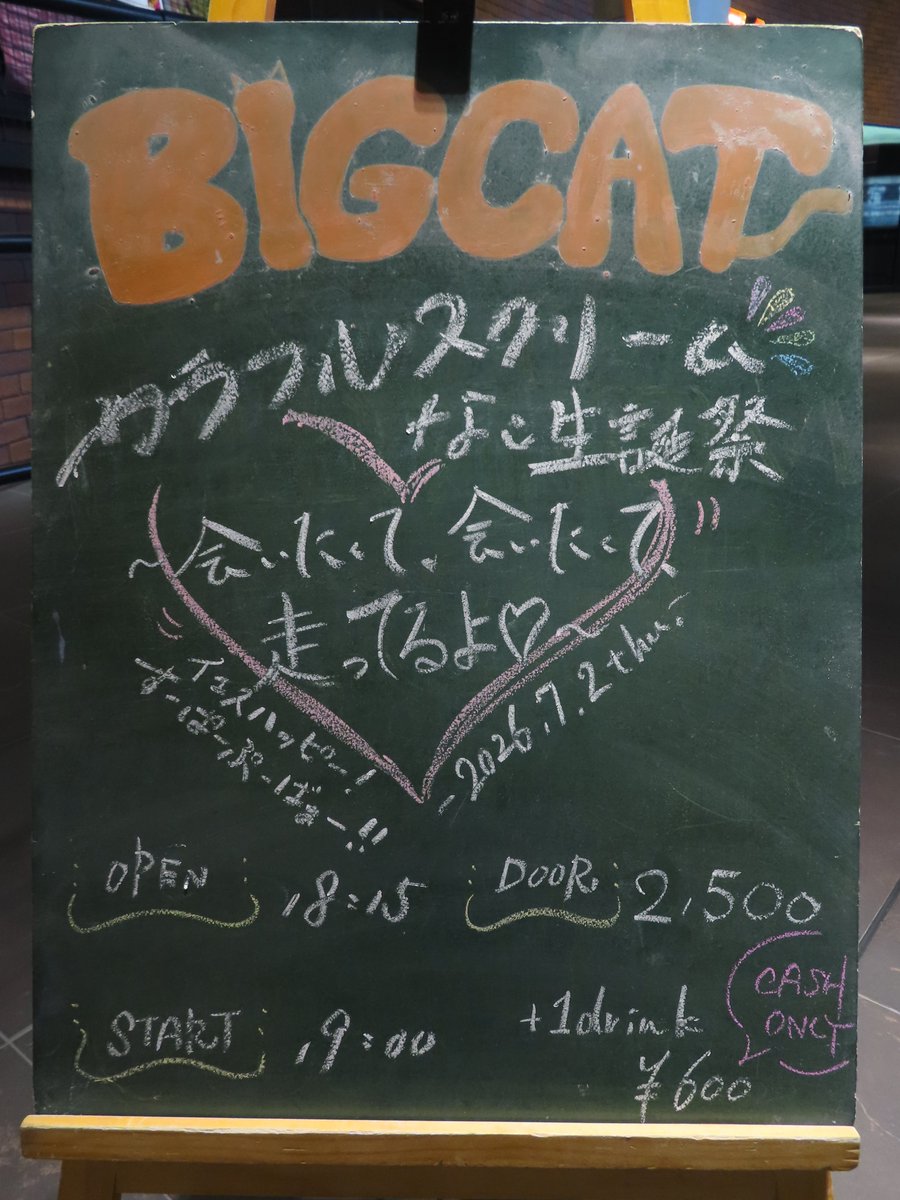 BIGCAT
カラフルスクリーム
なこ生誕祭
~会いたくて、会いたくて
走ってるよ♡~
イェスハッピー!
すーぱーぷーばぁー!!
-2026.7.2 thu.-
OPEN 18:15
DOOR 2,500
START 19:00
+1drink
¥600
CASH
ONLY